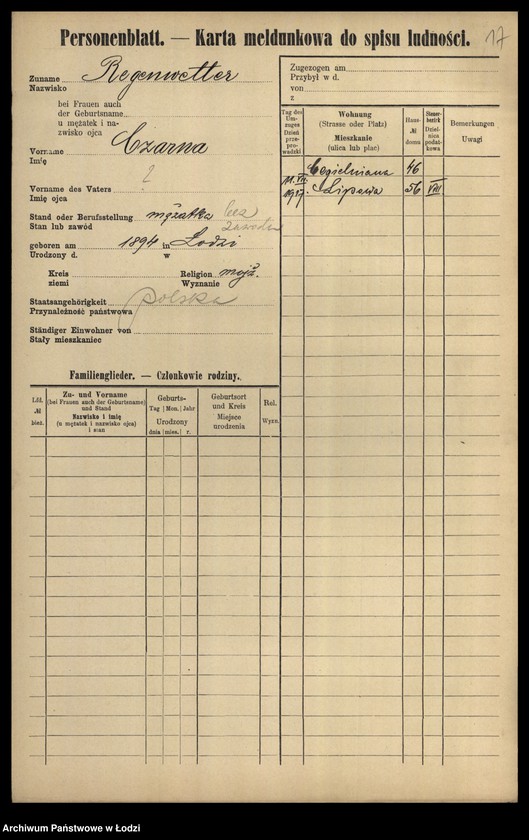 Personenblatt. — Karta meldunkowa do spisu ludności.
17
Zuname Regenwetter
Nazwisko
bei Frauen auch
der Geburtsname
u mężatek i na-
zwisko ojca
Czarna
Vorname
Imię
?
Vorname des Vaters
Imię ojca
Stand oder Berufsstellung mężatka bez
Stan lub zawód zawodu
geboren am 1894 in Łodzi
Urodzony d. w
Kreis Religion mojż.
ziemi Wyznanie
Staatsangehörigkeit polska
Przynależność państwowa
Ständiger Einwohner von
Stały mieszkaniec
Familienglieder. — Członkowie rodziny.
Lfd. № bież.
Zu- und Vorname
(bei Frauen auch der Geburtsname)
und Stand
Nazwisko i imię
(u mężatek i nazwisko ojca)
i stan
Geburts-
Tag Mon. Jahr
Urodzony
dnia mies. r.
Geburtsort
und Kreis
Miejsce
urodzenia
Rel.
Wyzn.
Zugezogen am
Przybył w d.
von
z
Tag des
Um-
zuges
Dzień
prze-
pro-
wadzki
Wohnung
(Strasse oder Platz)
Mieszkanie
(ulica lub plac)
Haus-
№
domu
Steuer-
bezirk
Dziel-
nica
podat-
kowa
Bemerkungen
Uwagi
Cegielniana 46
11. VII. 1917. Lipowa 56 VIII
Archiwum Państwowe w Łodzi